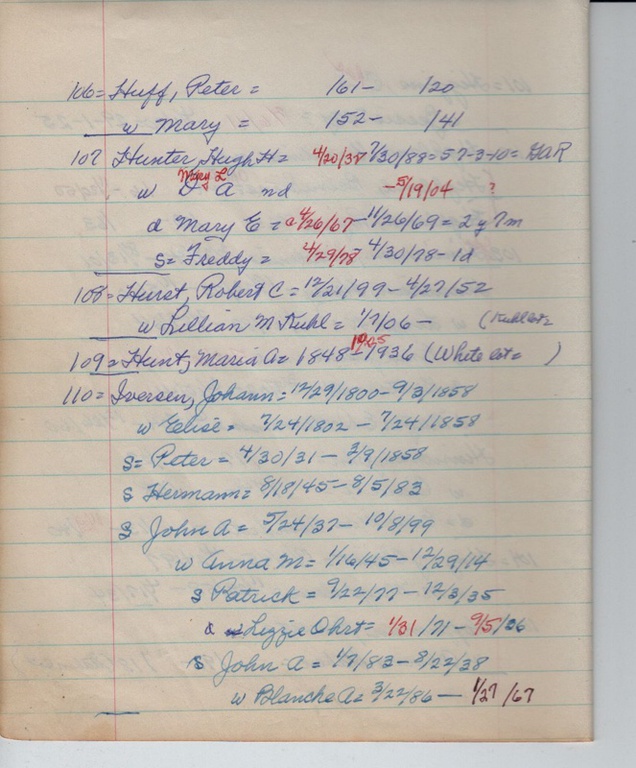 106= Huff, Peter = /61- /20
w Mary = 152- /41
107 Hunter, Hugh H= 4/20/32 - 7/30/89=57-3-10= GAR
w Mary L A nd -5/19/04 ?
d Mary E = 4/26/67 - 11/26/69= 2y 7m
s= Freddy = 4/29/78 - 4/30/78- 1d
108= Hurst, Robert C = 12/21/99 - 4/27/52
w Lillian M Kuhl = 1/7/06 - (Kuhl lot=
109= Hunt, Maria A= 1848 - 1936 (White lot= )
110= Iversen, Johann= 12/29/1800- 9/3/1858
w Elise= 7/24/1802 - 7/24/1858
s= Peter = 4/30/31 - 3/9/1858
s Hermann= 8/18/45 - 8/5/83
s John A = 5/24/37 - 10/8/99
w Anna M= 1/16/45 - 12/29/14
s Patrick = 9/22/77 - 12/3/35
d Lizzie Ohrt= 1/31/71 - 9/5/36
s John A = 1/7/83 - 8/22/38
w Blanche A= 3/22/86 - 1/27/67